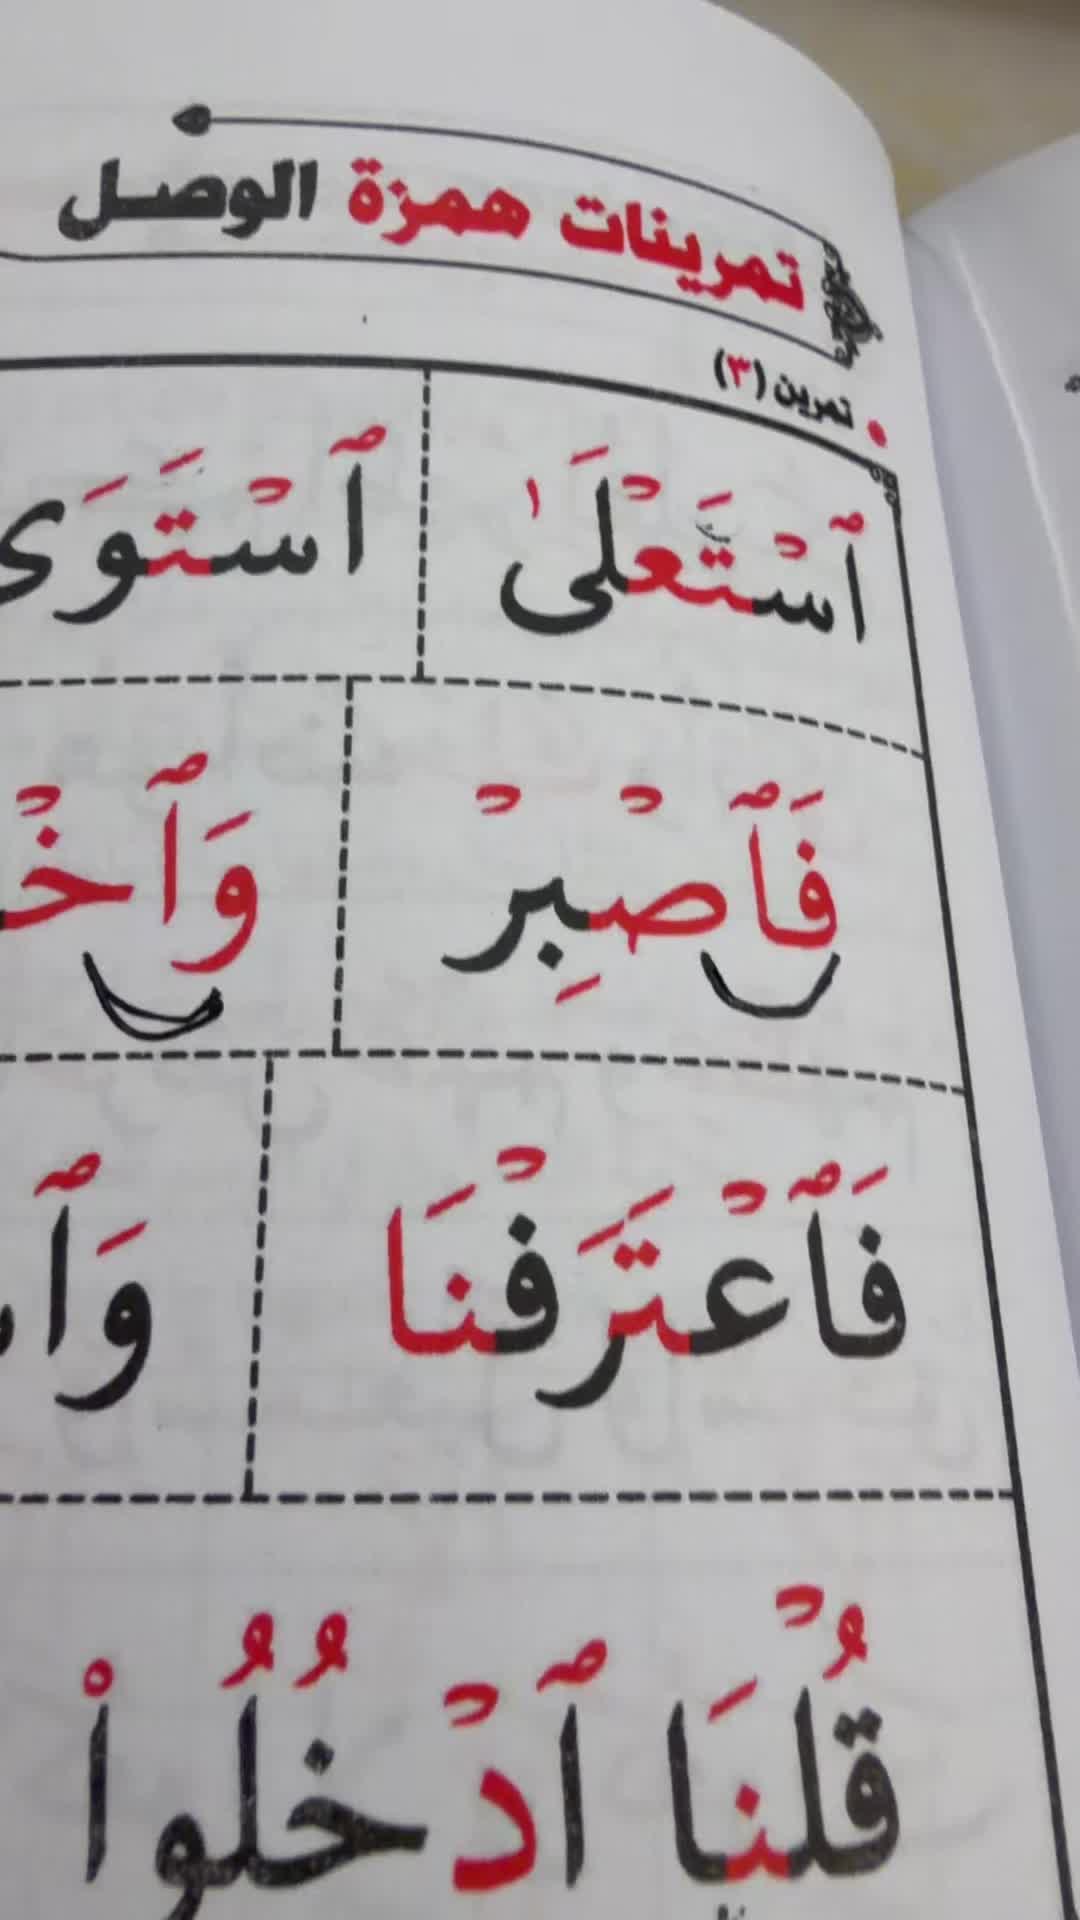 تمرينات همزة الوصل
تمرين (٣)
ٱسْتَعْلَىٰ ٱسْتَوَى
فَٱصْبِرْ
فَٱعْتَرَفْنَا
قُلْنَا ٱدْخُلُوا۟